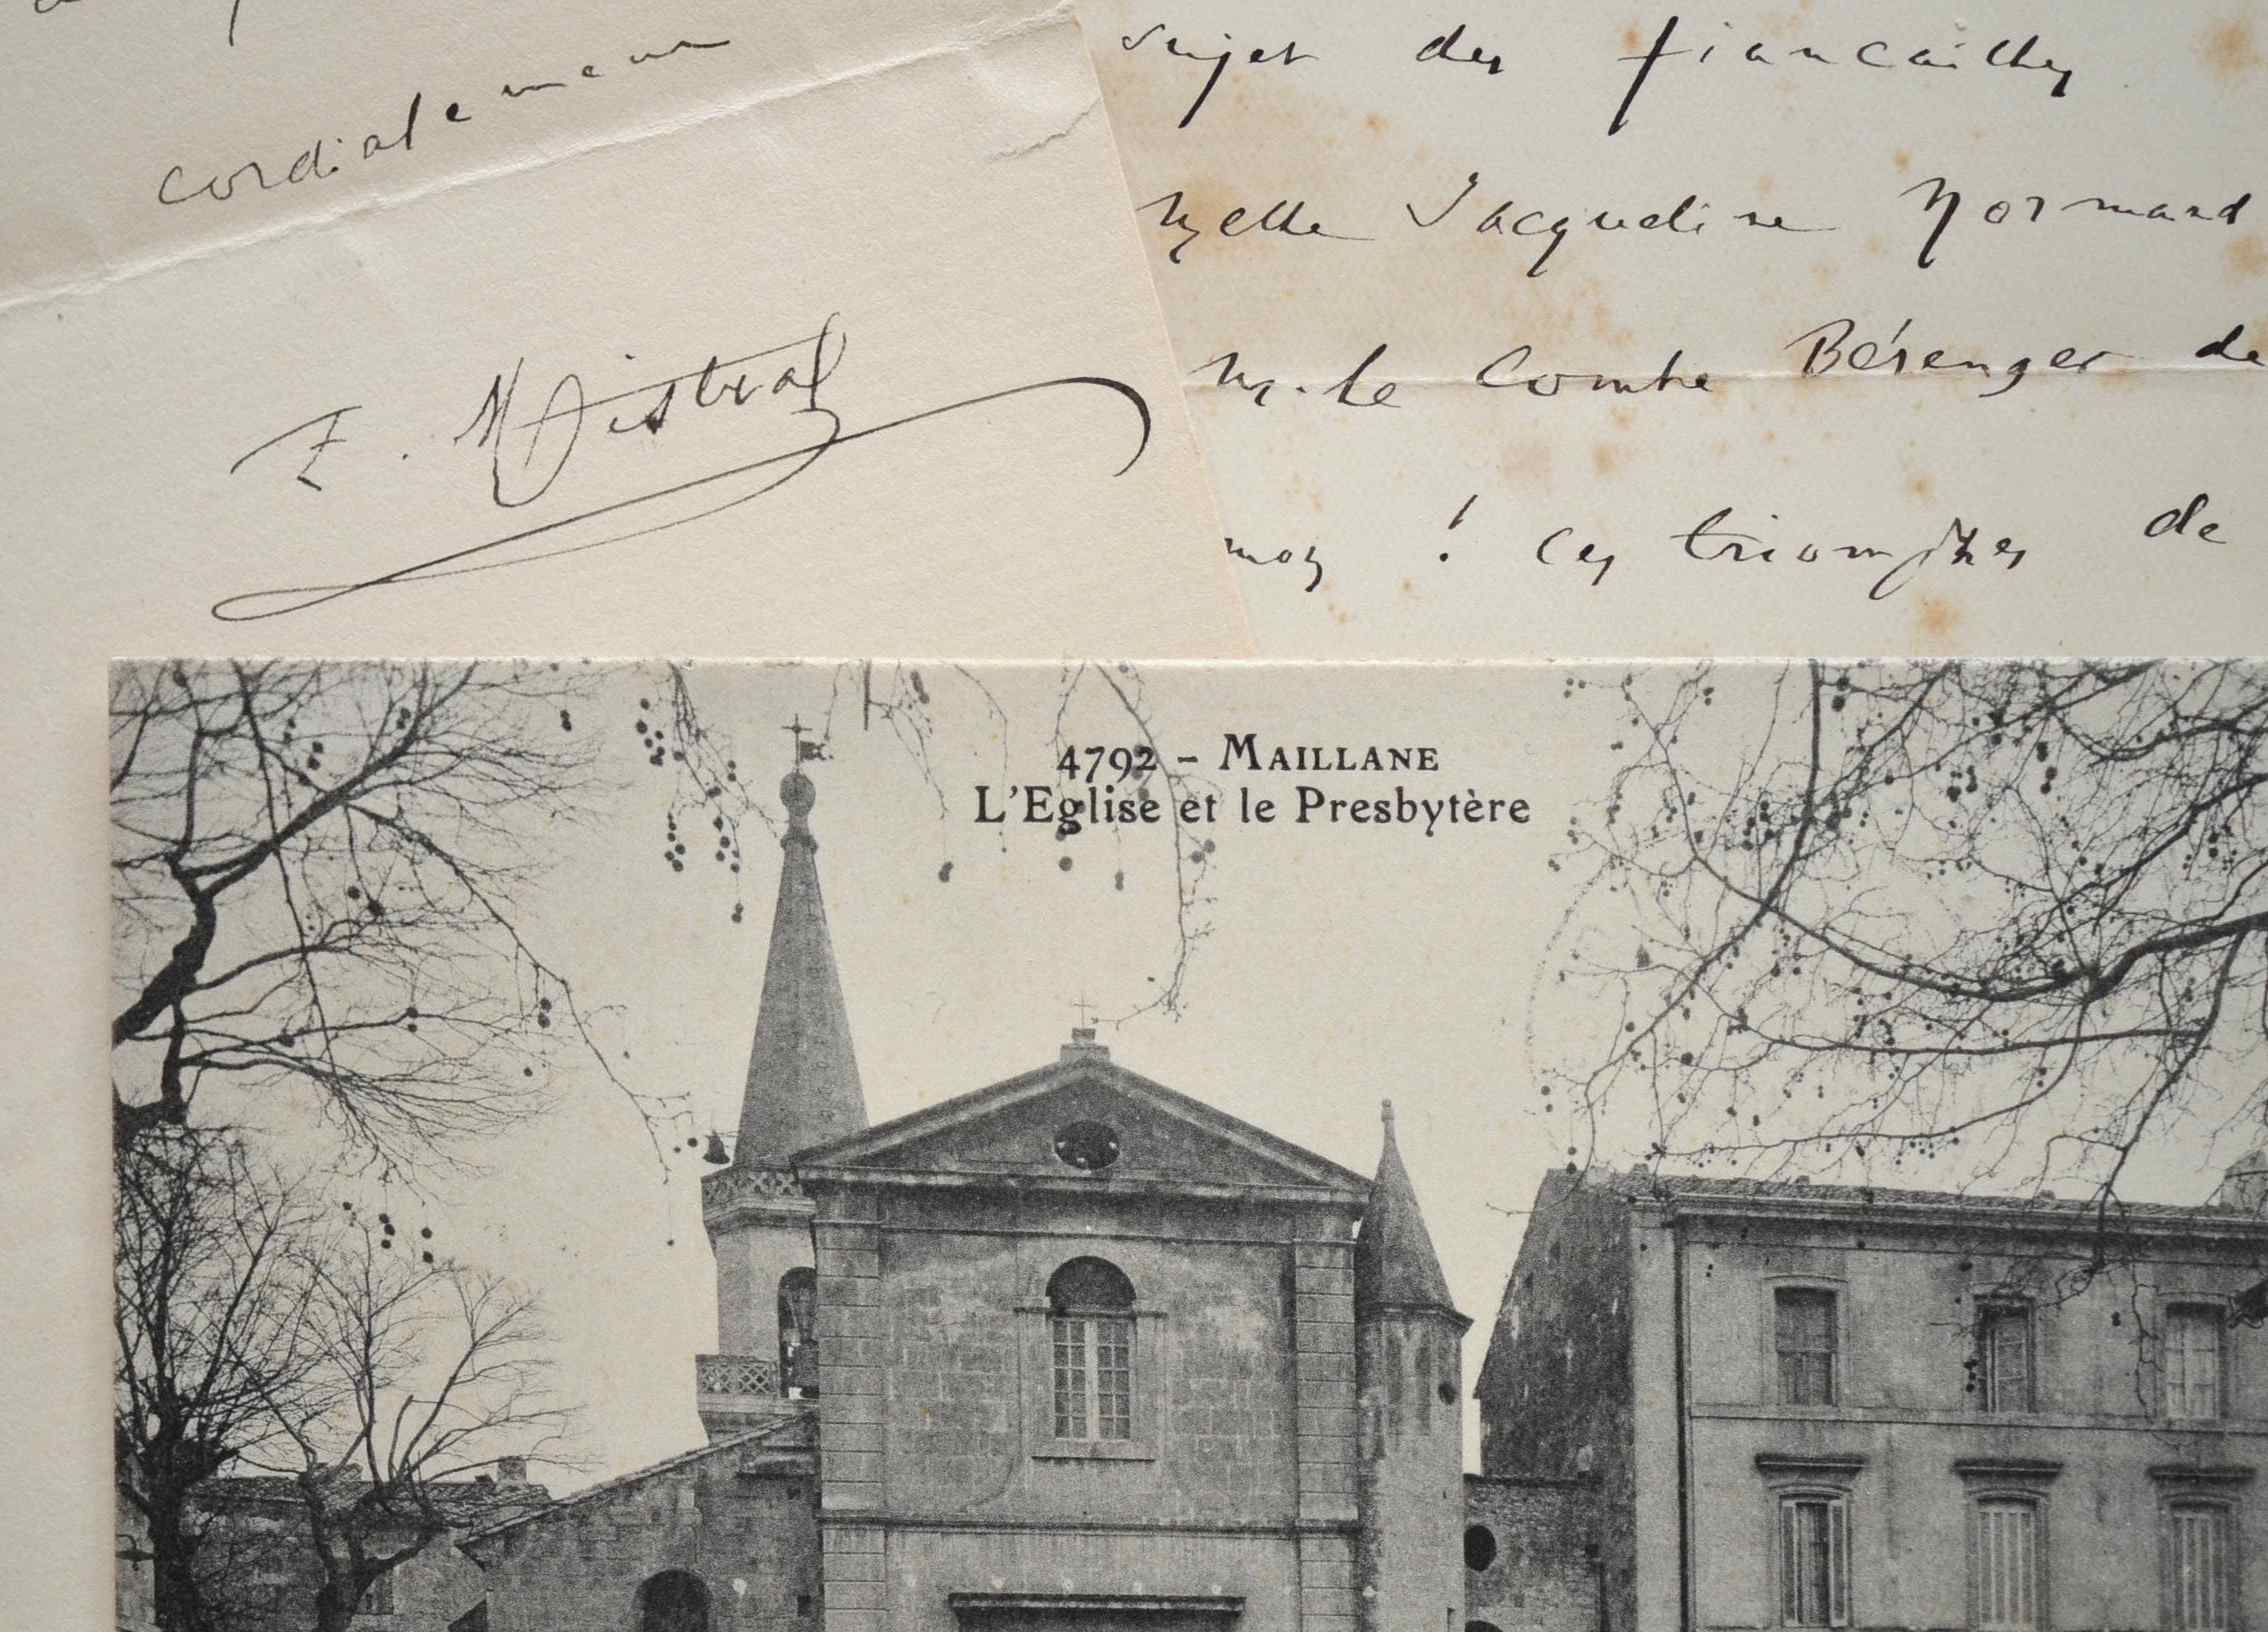 cordialement
F. Mistral
sujet des fiancailles
Melle Jacqueline Normand
M. le Comte Bérenger de
! ces triomphes de
4792 - MAILLANE
L'Eglise et le Presbytère